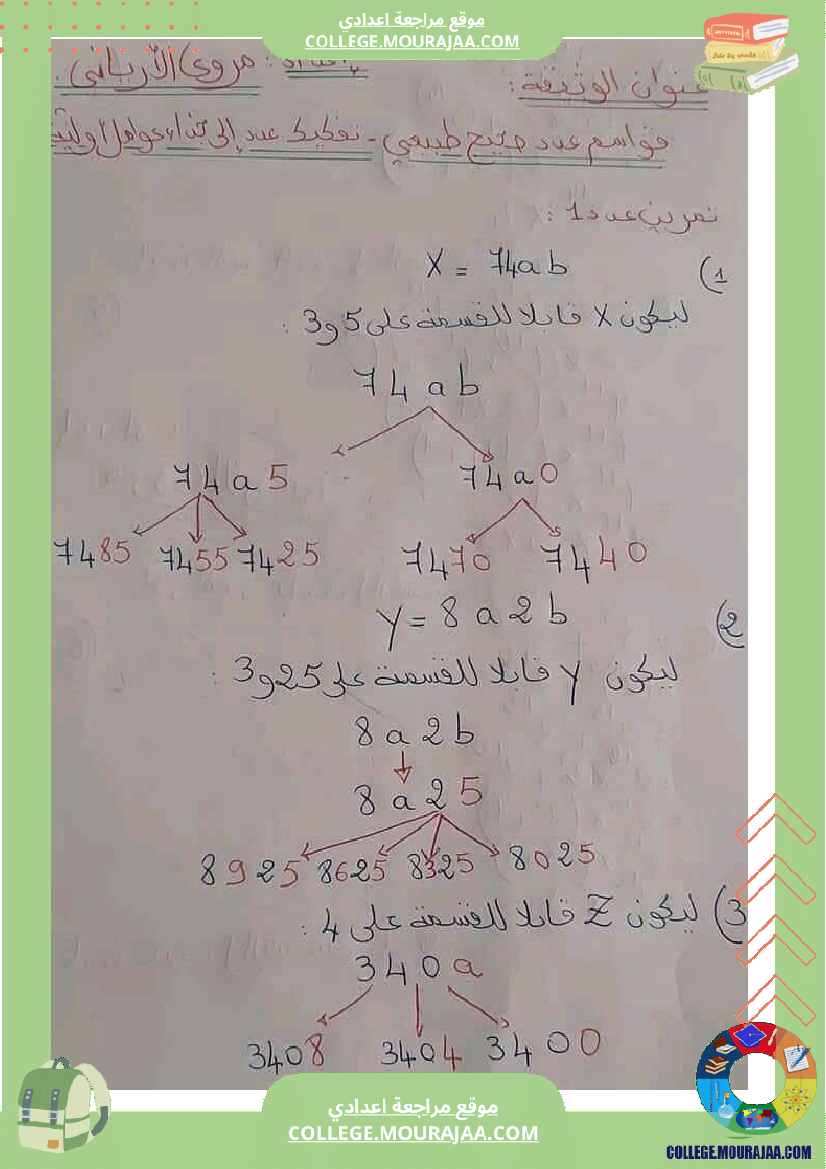 موقع مراجعة اعدادي
COLLEGE.MOURAJAA.COM
عنوان الوثيقة :
قواسم عدد صحيح طبيعي - تفكيك عدد إلى جذاء عوامل أولية
تمرين عدد 1 :
1) X = 74ab
ليكون X قابلا للقسمة على 5 و 3 :
74ab
74a5 74a0
7485 7455 7425 7470 7440
2) Y = 8a2b
ليكون Y قابلا للقسمة على 25 و 3 :
8a2b
8a25
8925 8625 8325 8025
3) ليكون Z قابلا للقسمة على 4 :
340a
3408 3404 3400
موقع مراجعة اعدادي
COLLEGE.MOURAJAA.COM
COLLEGE.MOURAJAA.COM